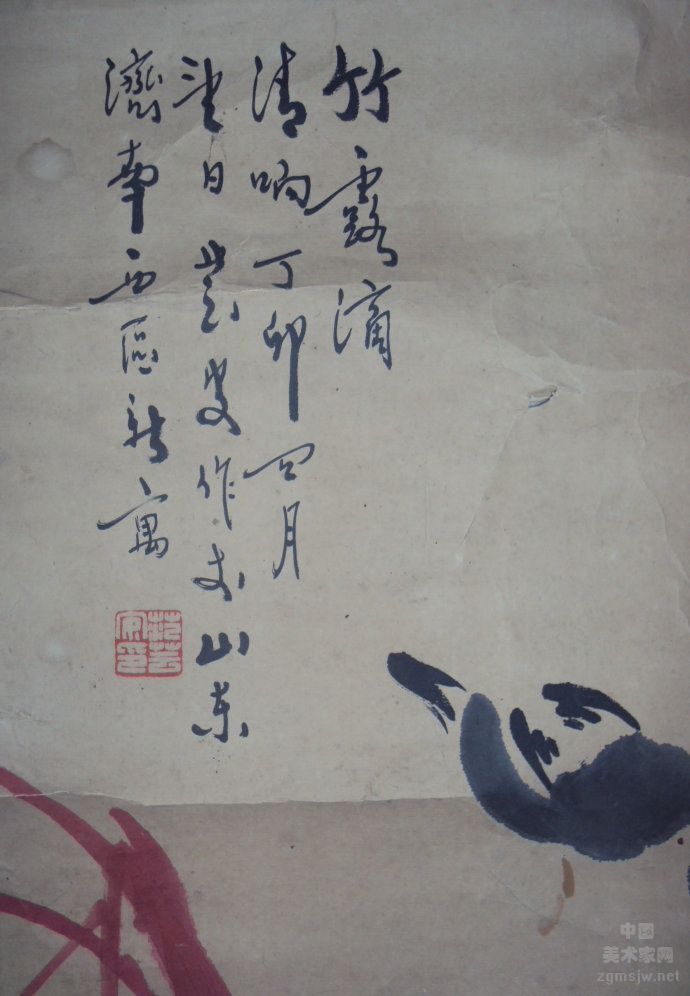 竹露滴
清响丁卯四月
望日芸叟作於山东
濟南西區新寓
中国
美术家网
zgmsjw.net